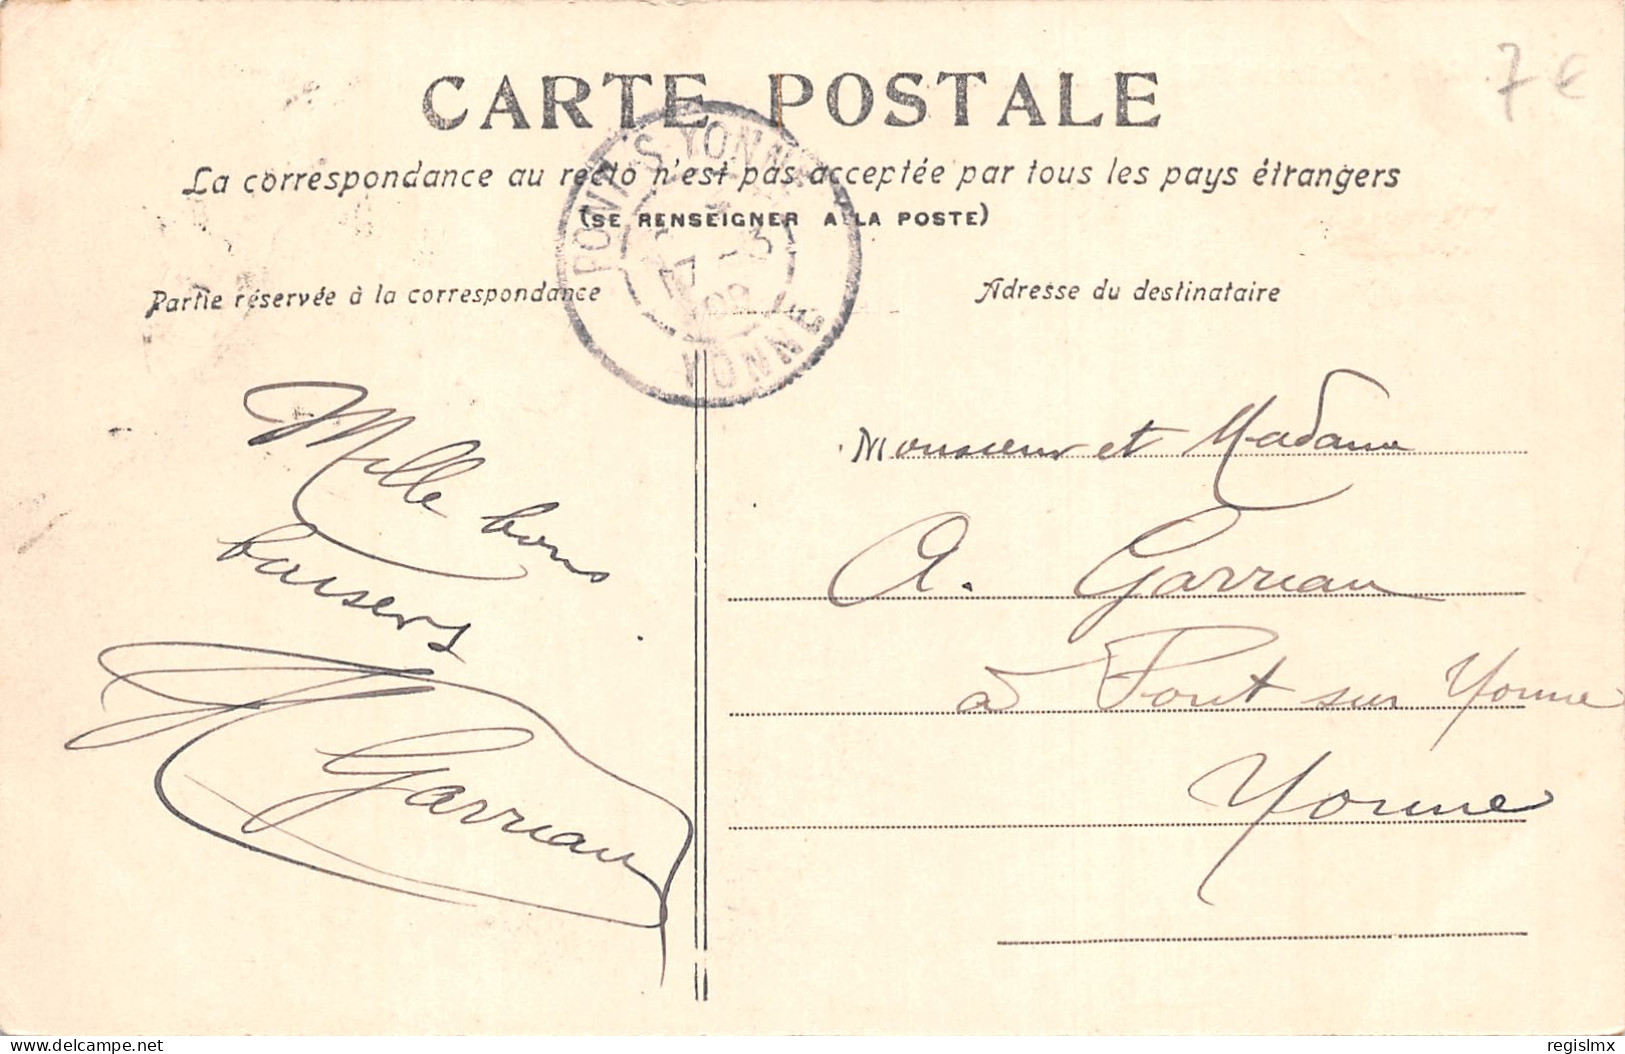 7 €
CARTE POSTALE
La correspondance au recto n'est pas acceptée par tous les pays étrangers
(SE RENSEIGNER A LA POSTE)
PONT-S-YONNE
YONNE
Partie réservée à la correspondance
Adresse du destinataire
Mille bons
baisers
Garreau
Monsieur et Madame
A. Garreau
à Pont sur Yonne
Yonne
www.delcampe.net
regislmx